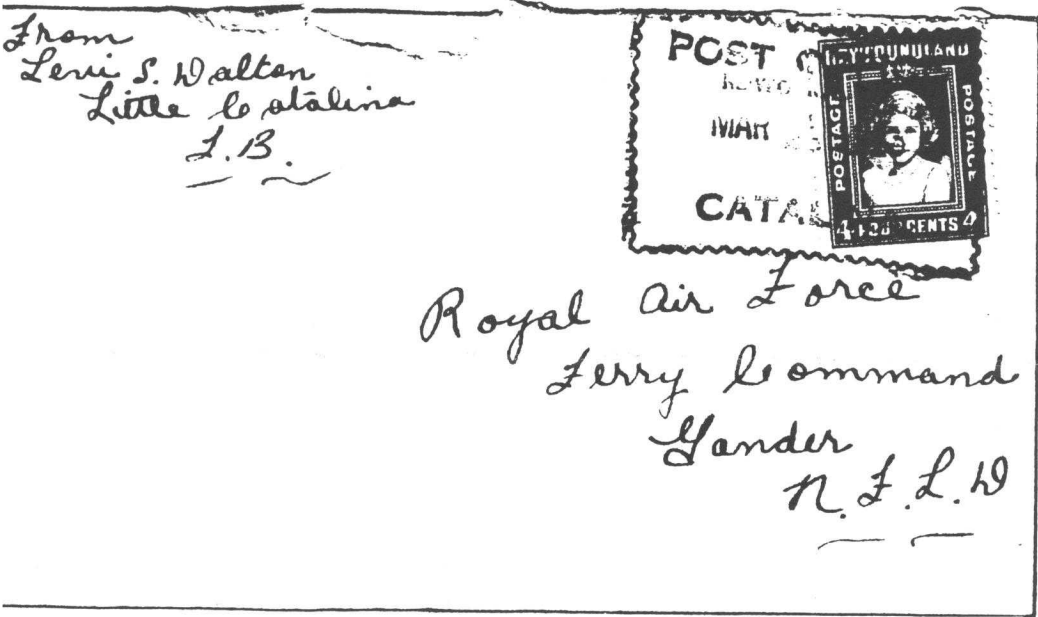 From
Levi S. Dalton
Little Catalina
T.B.
POST
MAR
CATA
NEWFOUNDLAND
POSTAGE
POSTAGE
4 FOUR CENTS 4
Royal Air Force
Ferry Command
Gander
N.F.L.D